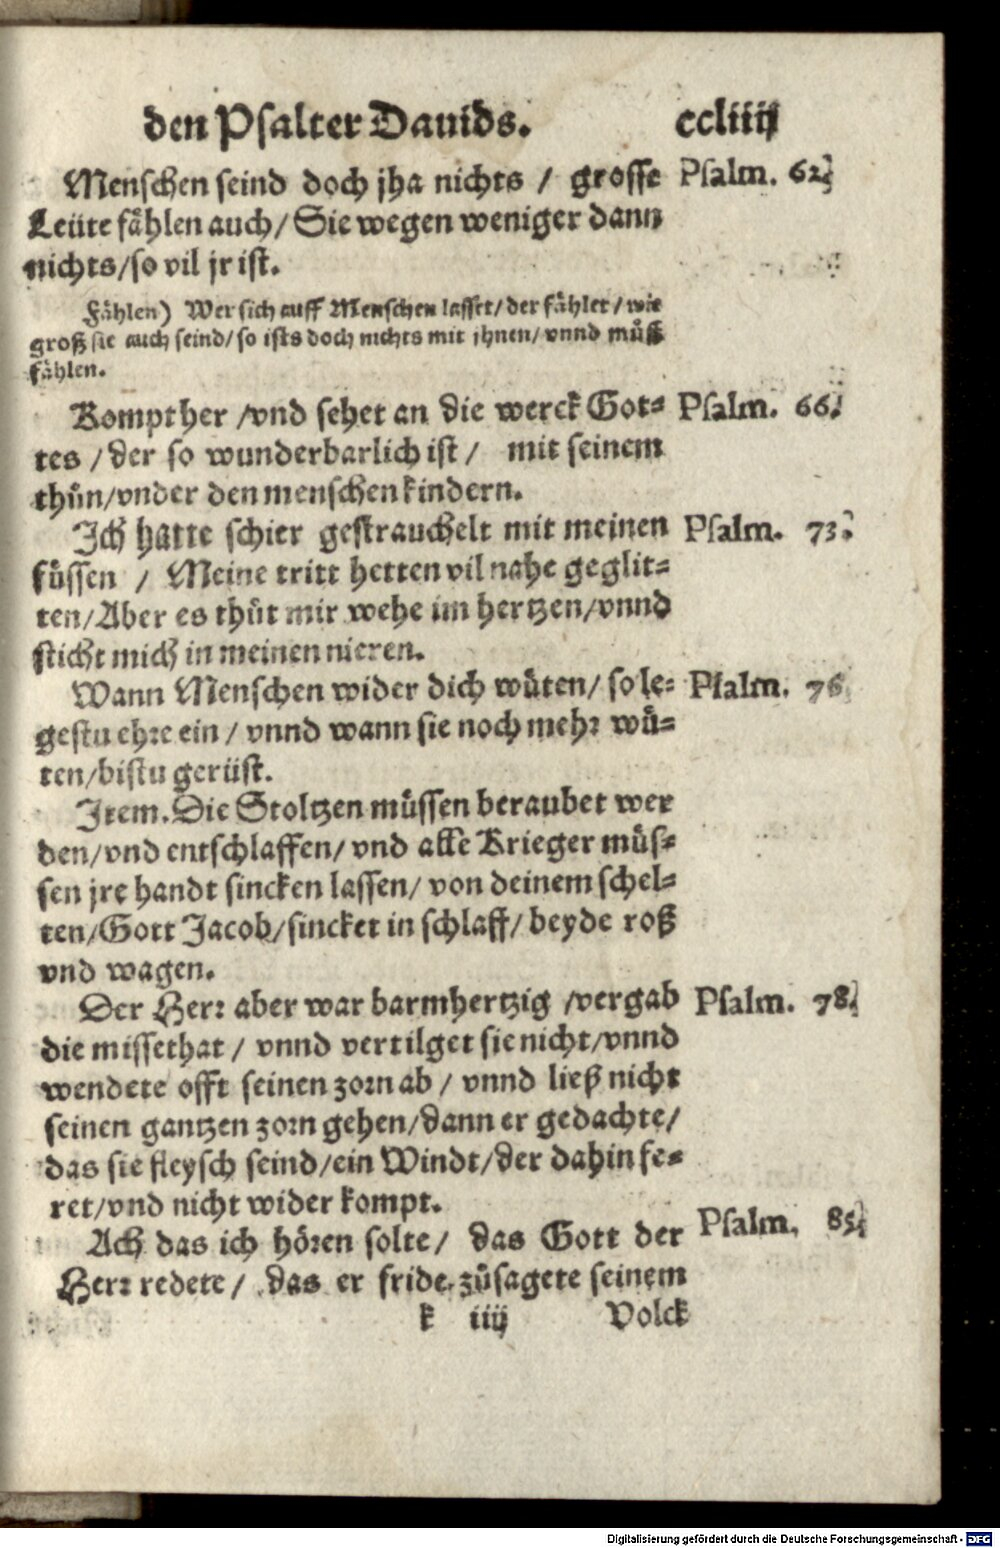 den Psalter Dauids. ccliiij
Menschen seind doch jha nichts / grosse Psalm. 62.
Leüte fählen auch/ Sie wegen weniger dann
nichts/so vil jr ist.
Fählen) Wer sich auff Menschen lasset/der fählet/wie
groß sie auch seind/so ists doch nichts mit ihnen/vnnd müß
fählen.
Kompther /vnd sehet an die werck Got= Psalm. 66.
tes /der so wunderbarlich ist / mit seinem
thůn/vnder den menschen kindern.
Ich hatte schier gestrauchelt mit meinen Psalm. 73.
füssen / Meine tritt hetten vil nahe geglit=
ten/Aber es thůt mir wehe im hertzen/vnnd
sticht mich in meinen nieren.
Wann Menschen wider dich wüten/ so le= Psalm. 76.
gestu ehre ein / vnnd wann sie noch mehr wü=
ten/bistu gerüst.
Item. Die Stoltzen müssen beraubet wer
den/vnd entschlaffen/ vnd alle Krieger müs=
sen jre handt sincken lassen/ von deinem schel=
ten/Gott Jacob/sincket in schlaff/ beyde roß
vnd wagen.
Der Herr aber war barmhertzig /vergab Psalm. 78.
die missethat / vnnd vertilget sie nicht/vnnd
wendete offt seinen zorn ab / vnnd ließ nicht
seinen gantzen zorn gehen/dann er gedachte/
das sie fleysch seind/ein Windt/der dahin fe=
ret/vnd nicht wider kompt.
Ach das ich hören solte/ das Gott der Psalm. 85.
Herr redete/ das er fride zůsagete seinem
k iiij Volck
Digitalisierung gefördert durch die Deutsche Forschungsgemeinschaft - DFG